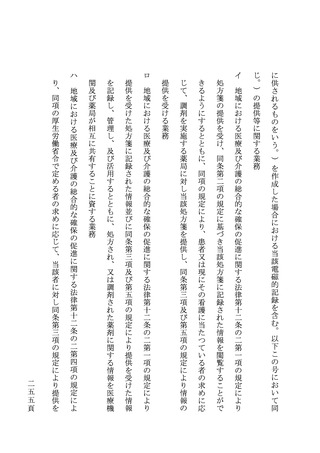 に供されるものをいう。）を作成した場合における当該電磁的記録を含む。以下この号において同
じ。）の提供等に関する業務
イ　地域における医療及び介護の総合的な確保の促進に関する法律第十二条の二第一項の規定により
処方箋の提供を受け、同条第二項の規定に基づき当該処方箋に記録された情報を閲覧することがで
きるようにするとともに、同項の規定により、患者又は現にその看護に当たつている者の求めに応
じて、調剤を実施する薬局に対し当該処方箋を提供し、同条第三項及び第五項の規定により情報の
提供を受ける業務
ロ　地域における医療及び介護の総合的な確保の促進に関する法律第十二条の二第一項の規定により
提供を受けた処方箋に記録された情報並びに同条第三項及び第五項の規定により提供を受けた情報
を記録し、管理し、及び活用するとともに、処方され、又は調剤された薬剤に関する情報を医療機
関及び薬局が相互に共有することに資する業務
ハ　地域における医療及び介護の総合的な確保の促進に関する法律第十二条の二第四項の規定によ
り、同項の厚生労働省令で定める者の求めに応じて、当該者に対し同条第三項の規定により提供を
二五五頁